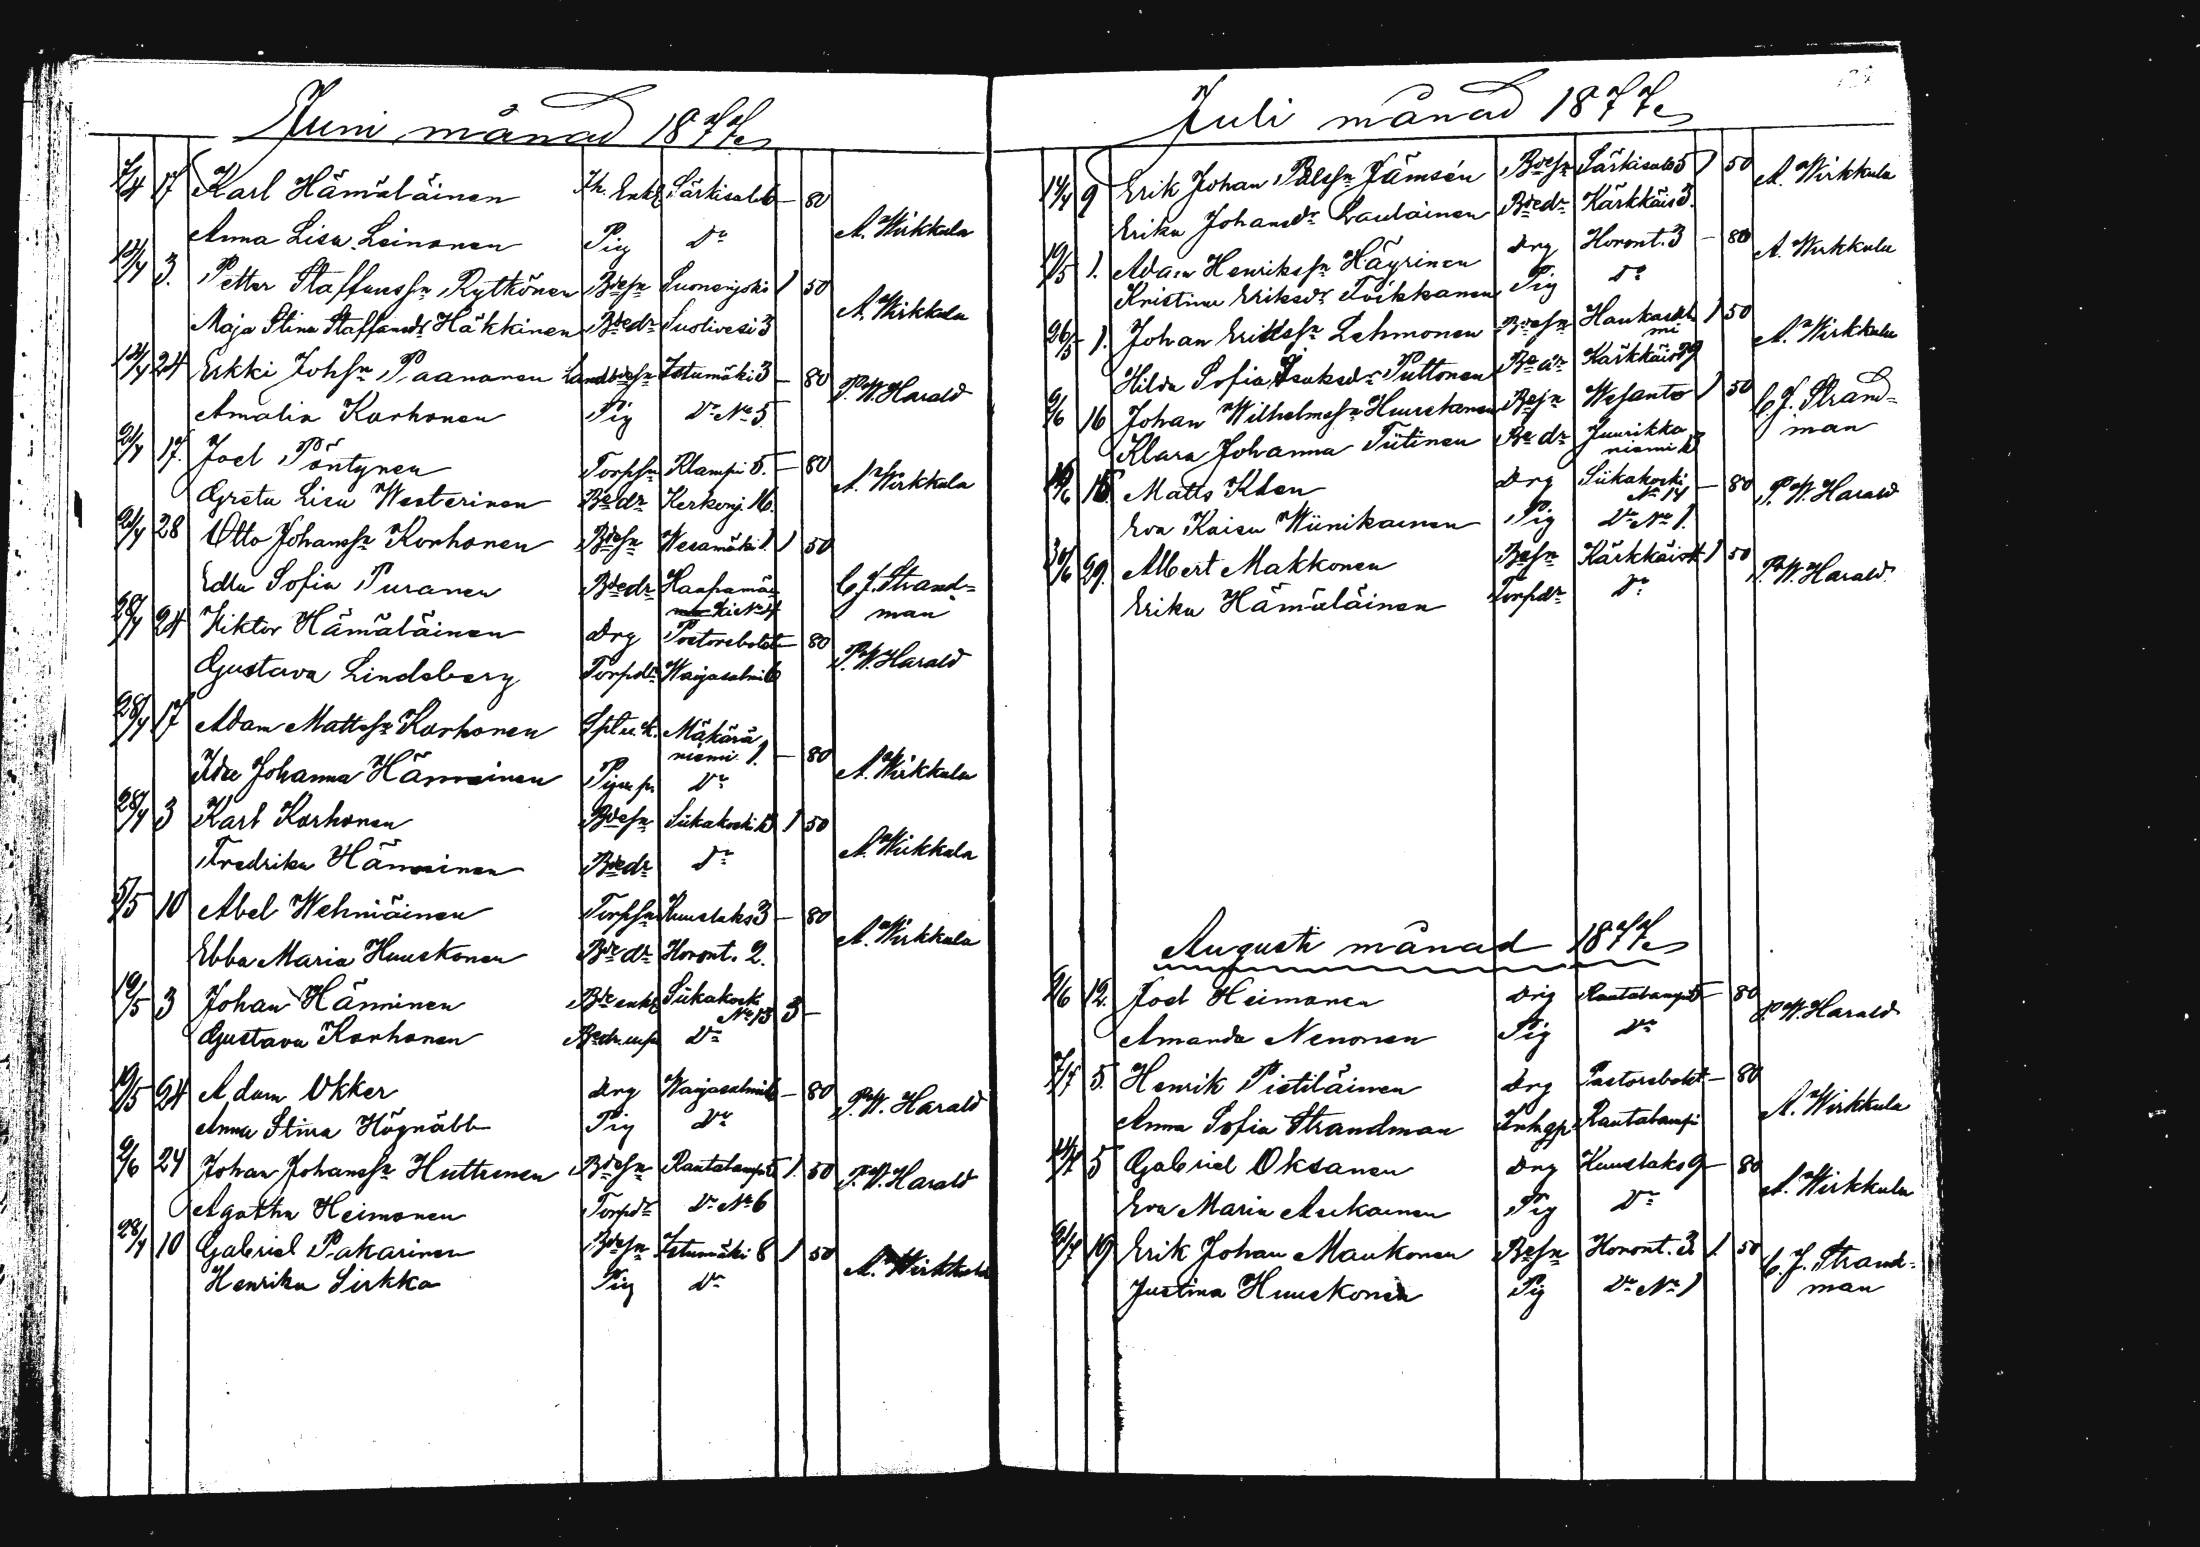 Juni månad 1877
7/4 17 Karl Hämäläinen Jth. Enkl Särkisalo 6 — 80
Anna Lisa Leinonen Pig Do A. Wirkkula
12/4 3. Petter Staffansson Rytkönen Bdesn Suonenjoki 1 50
Maja Stina Staffansdr Häkkinen Bdedr Suolivesi 3 A. Wirkkula
12/4 24 Erkki Johsn Paananen Landbdesn Istumäki 3 — 80 P.W. Harald
Amalia Korhonen Pig Do No 5
21/4 17. Joel Pöntynen Torpsn Rlampi 5. — 80
Greta Lisa Westerinen Bdedr Kerkonj. 16. A. Wirkkula
21/4 28 Otto Johanssn Korhonen Bdesn Wesamäki 1. 1 50
Edla Sofia Puranen Bdedr Haapamä- C. J. Strand-
ki No 4 man
28/4 24 Wiktor Hämäläinen Drg Pastorsbolet — 80
Gustava Lindsberg Torpdr Waajasalmi 6 P.W. Harald
28/4 17 Adam Mattssn Korhonen Mäkärä
niemi 1. — 80
Ida Johanna Hänninen Do A. Wirkkula
28/4 3 Karl Korhonen Bdesn Siikakoski 13 1 50
Fredrika Hänninen Bdedr Do A. Wirkkula
5/5 10 Abel Wehniäinen Torpsn Kuuslaks 3 — 80
Ebba Maria Huuskonen Bdedr Horont. 2. A. Wirkkula
19/5 3 Johan Hänninen Bde enkl Siikakosk
No 13 3 —
Gustava Korhonen Do
19/5 24 Adam Okker Drg Waajasalmi 6 — 80 P.W. Harald
Anna Stina Högnäbb Pig Do
2/6 24 Johan Johanssn Huttunen Bdesn Rautalampi 5 1. 50 P.W. Harald
Agatha Heimonen Torpdr Do No 6
28/4 10 Gabriel Pakarinen Bdesn Istumäki 8 1 50 A. Wirkkula
Henrika Sirkka Pig Do
Juli månad 1877
14/4 9 Erik Johan Pålssn Jämsén Bdesn Särkisalo 5 1 50 A. Wirkkula
Erika Johansdr Laulainen Bdedr Kärkkäis 3.
19/5 1. Adam Henrikssn Häyrinen Drg Horont. 3 — 80 A. Wirkkula
Kristina Eriksdr Toikkanen Pig Do
26/5 1. Johan Erikssn Lehmonen Bdesn Hankasal-
mi 1 50 A. Wirkkula
Hilda Sofia Isaksdr Puttonen Bdedr Kärkkäis 19
2/6 16 Johan Wilhelmssn Huuskonen Bdesn Wesanto 1 50 C. J. Strand-
Klara Johanna Tiitinen Bdedr Juurikka man
niemi 13
15. Matts Klen Drg Siikakoski
No 14 — 80 P.W. Harald
Eva Kaisa Wiinikainen Pig Do No 1.
30/6 29. Albert Makkonen Bdesn Kärkkäis 14 1 50 P.W. Harald
Erika Hämäläinen Torpdr Do
Augusti månad 1877
2/6 12. Joel Heimonen Drg Rautalampi 5 — 80 P.W. Harald
Amanda Nenonen Pig Do
7/7 5. Henrik Pietiläinen Drg Pastorsbolet — 80
Anna Sofia Strandman Inhgp Rautalampi A. Wirkkula
14/7 5 Gabriel Oksanen Drg Kuuslaks 9 — 80
Eva Maria Asikainen Pig Do A. Wirkkula
21/7 19 Erik Johan Maukonen Bdesn Horont. 3. 1. 50 C. J. Strand-
Justina Huuskonen Pig Do No 1 man